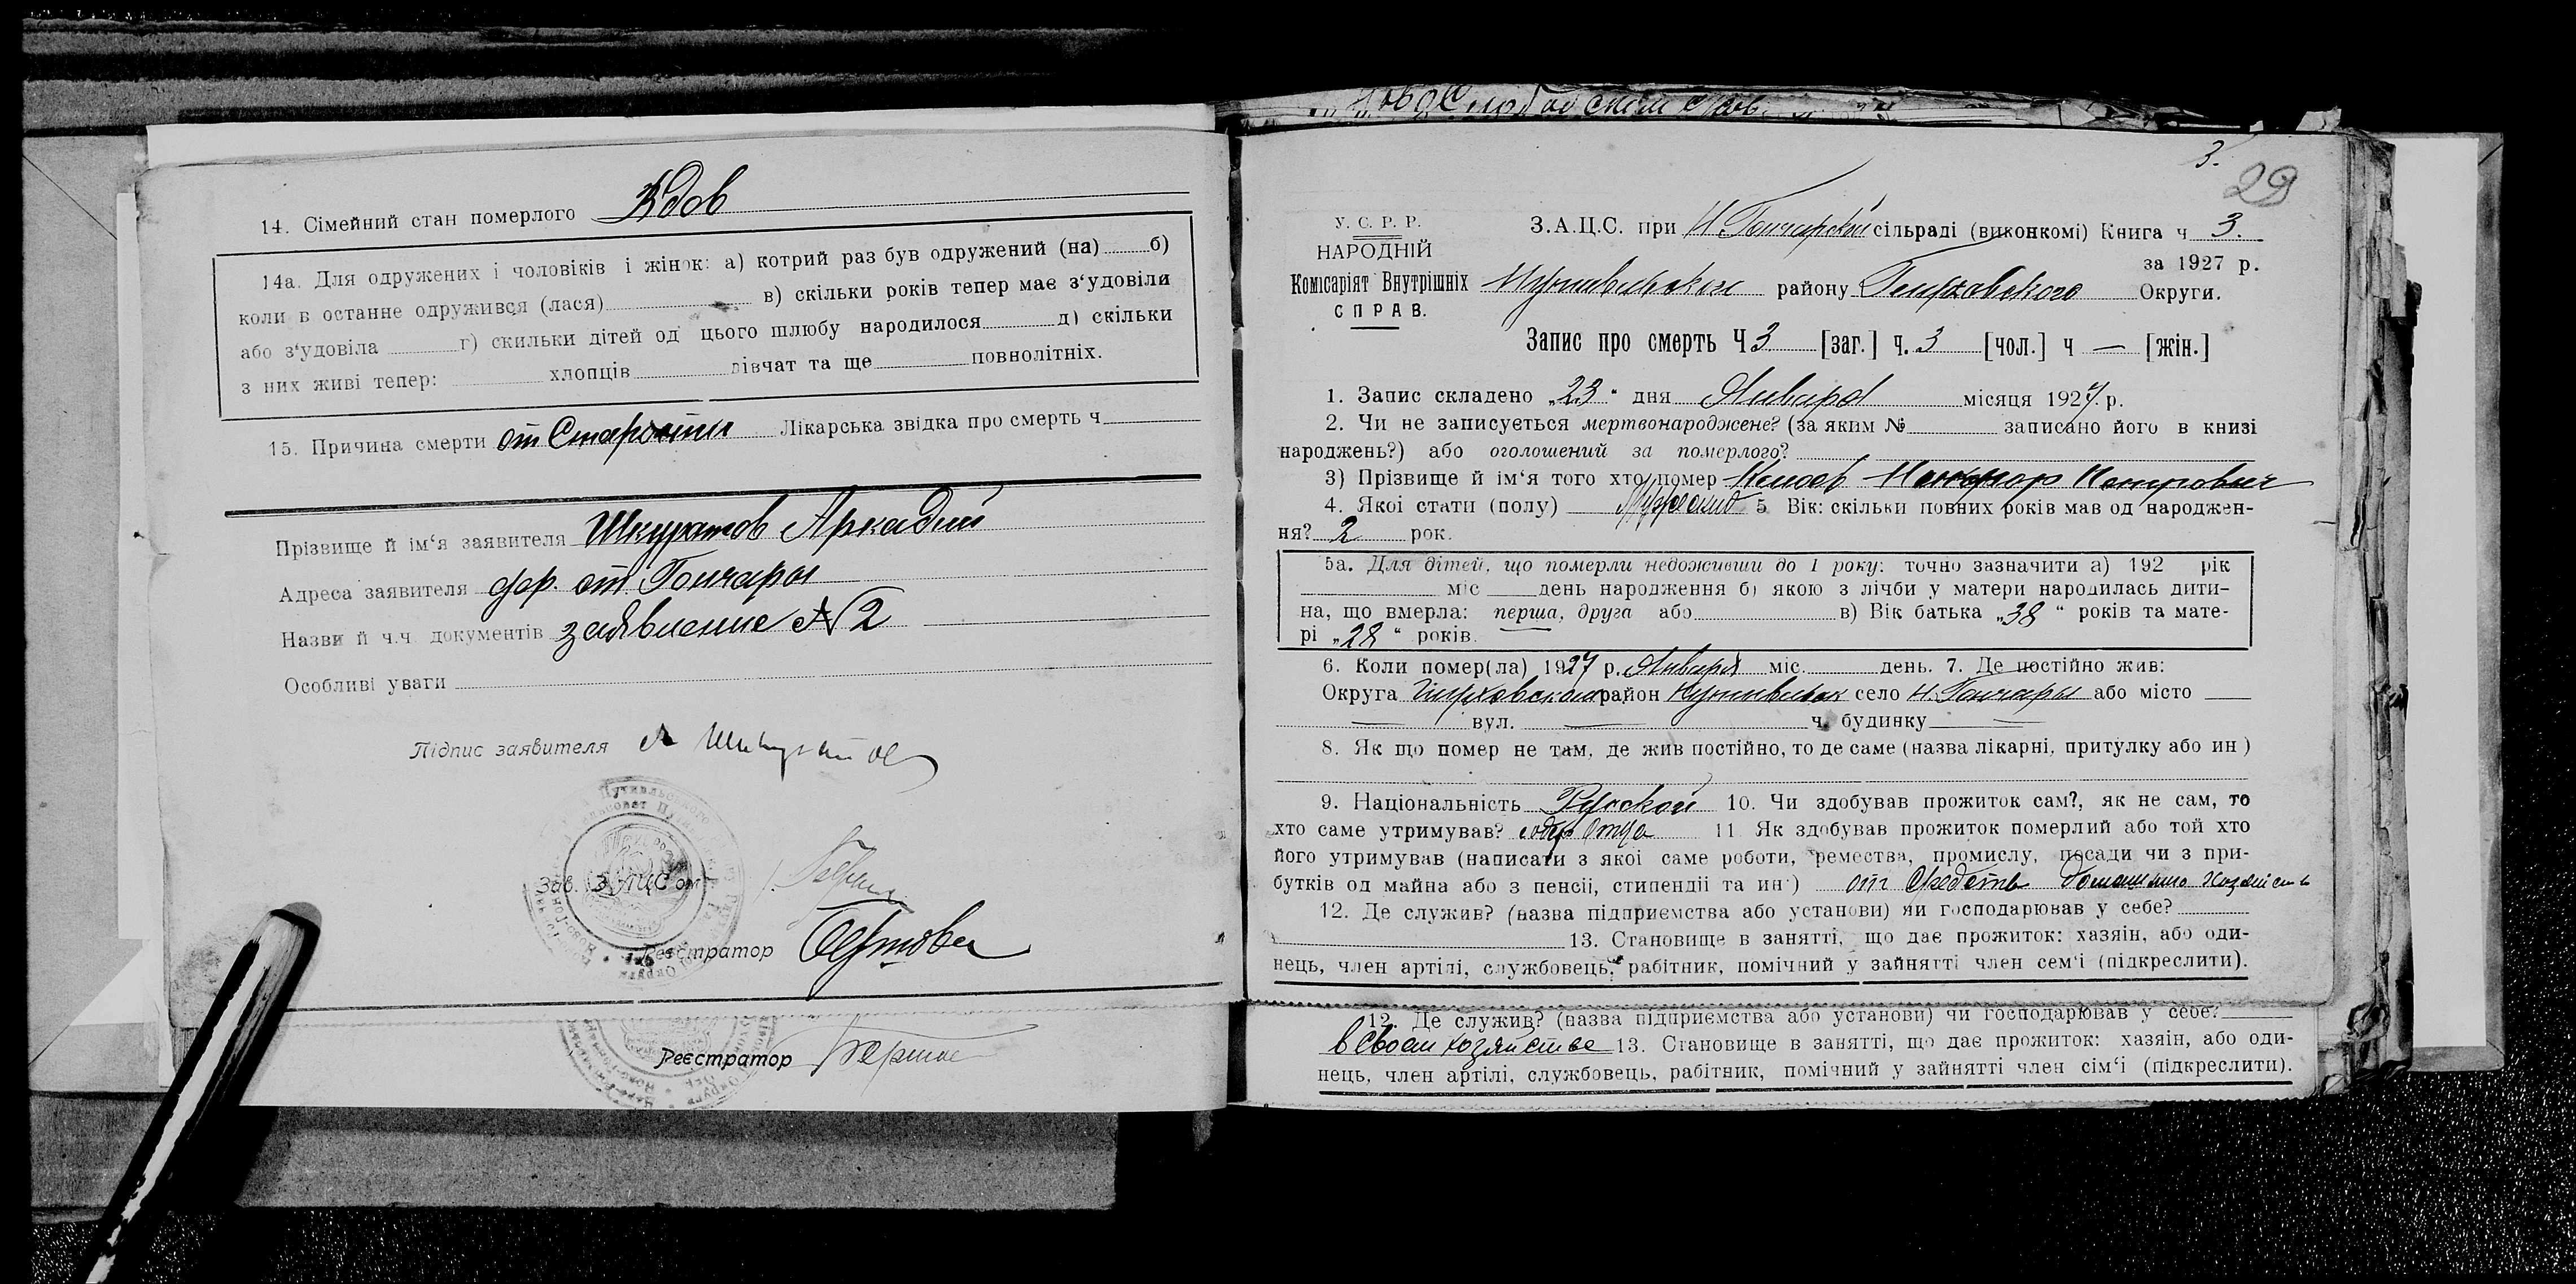 14. Сімейний стан померлого Вдов
14а. Для одружених і чоловіків і жінок: а) котрий раз був одружений (на) б)
коли в останне одружився (лася) в) скільки років тепер має з‘удовіли
або з‘удовіла г) скильки дітей од цього шлюбу народилося д) скільки
з них живі тепер: хлопців дівчат та ще повнолітніх.
15. Причина смерти от Старости Лікарська звідка про смерть ч
Прізвище й ім‘я заявителя Шкуратов Аркадий
Адреса заявителя дер. от Гончары
Назви й ч.ч документів заявление № 2
Особливі уваги
Підпис заявителя А Шкуратов
Зав. ЗАЦС‘ом
Реєстратор
Реєстратор
3.
29
У. С. Р. Р.
НАРОДНІЙ
Комісаріят Внутрішніх
СПРАВ.
З.А.Ц.С. при Н. Гончарской сільраді (виконкомі) Книга ч 3.
за 1927 р.
району Округи.
Запис про смерть Ч 3 [заг.] ч. 3 [чол.] ч — [жін.]
1. Запис складено „23“ дня Января місяця 1927 р.
2. Чи не записується мертвонароджене? (за яким № записано його в книзі
народжень?) або оголошений за померлого?
3) Прізвище й ім‘я того хто помер Никанор Петрович
4. Якоі стати (полу) Мужской 5 Вік: скільки повних років мав од народжен-
ня? 2 рок.
5а. Для дітей, що померли недоживши до 1 року: точно зазначити а) 192 рік
міс день народження б) якою з лічби у матери народилась дити-
на, що вмерла: перша, друга або в) Вік батька „38“ років та мате-
рі „28“ років.
6. Коли помер(ла) 1927 р. Января міс. день. 7. Де постійно жив:
Округа район село Н. Гончары або місто —
— вул. — ч. будинку —
8. Як що помер не там, де жив постійно, то де саме (назва лікарні, притулку або ин)
9. Національність Русской 10. Чи здобував прожиток сам?, як не сам, то
хто саме утримував? Отца 11 Як здобував прожиток померлий або той хто
його утримував (написати з якоі саме роботи, ремества, промислу, посади чи з при-
бутків од майна або з пенсіі, стипендіі та ин) от Средств
12. Де служив? (назва підприємства або установи) чи господарював у себе?
13. Становище в занятті, що дає прожиток: хазяін, або оди-
нець, член артілі, службовець, рабітник, помічний у зайнятті член сем‘і (підкреслити).
12. Де служив? (назва підприємства або установи) чи господарював у себе?
в своем хозяйстве 13. Становище в занятті, що дає прожиток: хазяін, або оди-
нець, член артілі, службовець, рабітник, помічний у зайнятті член сім‘і (підкреслити).